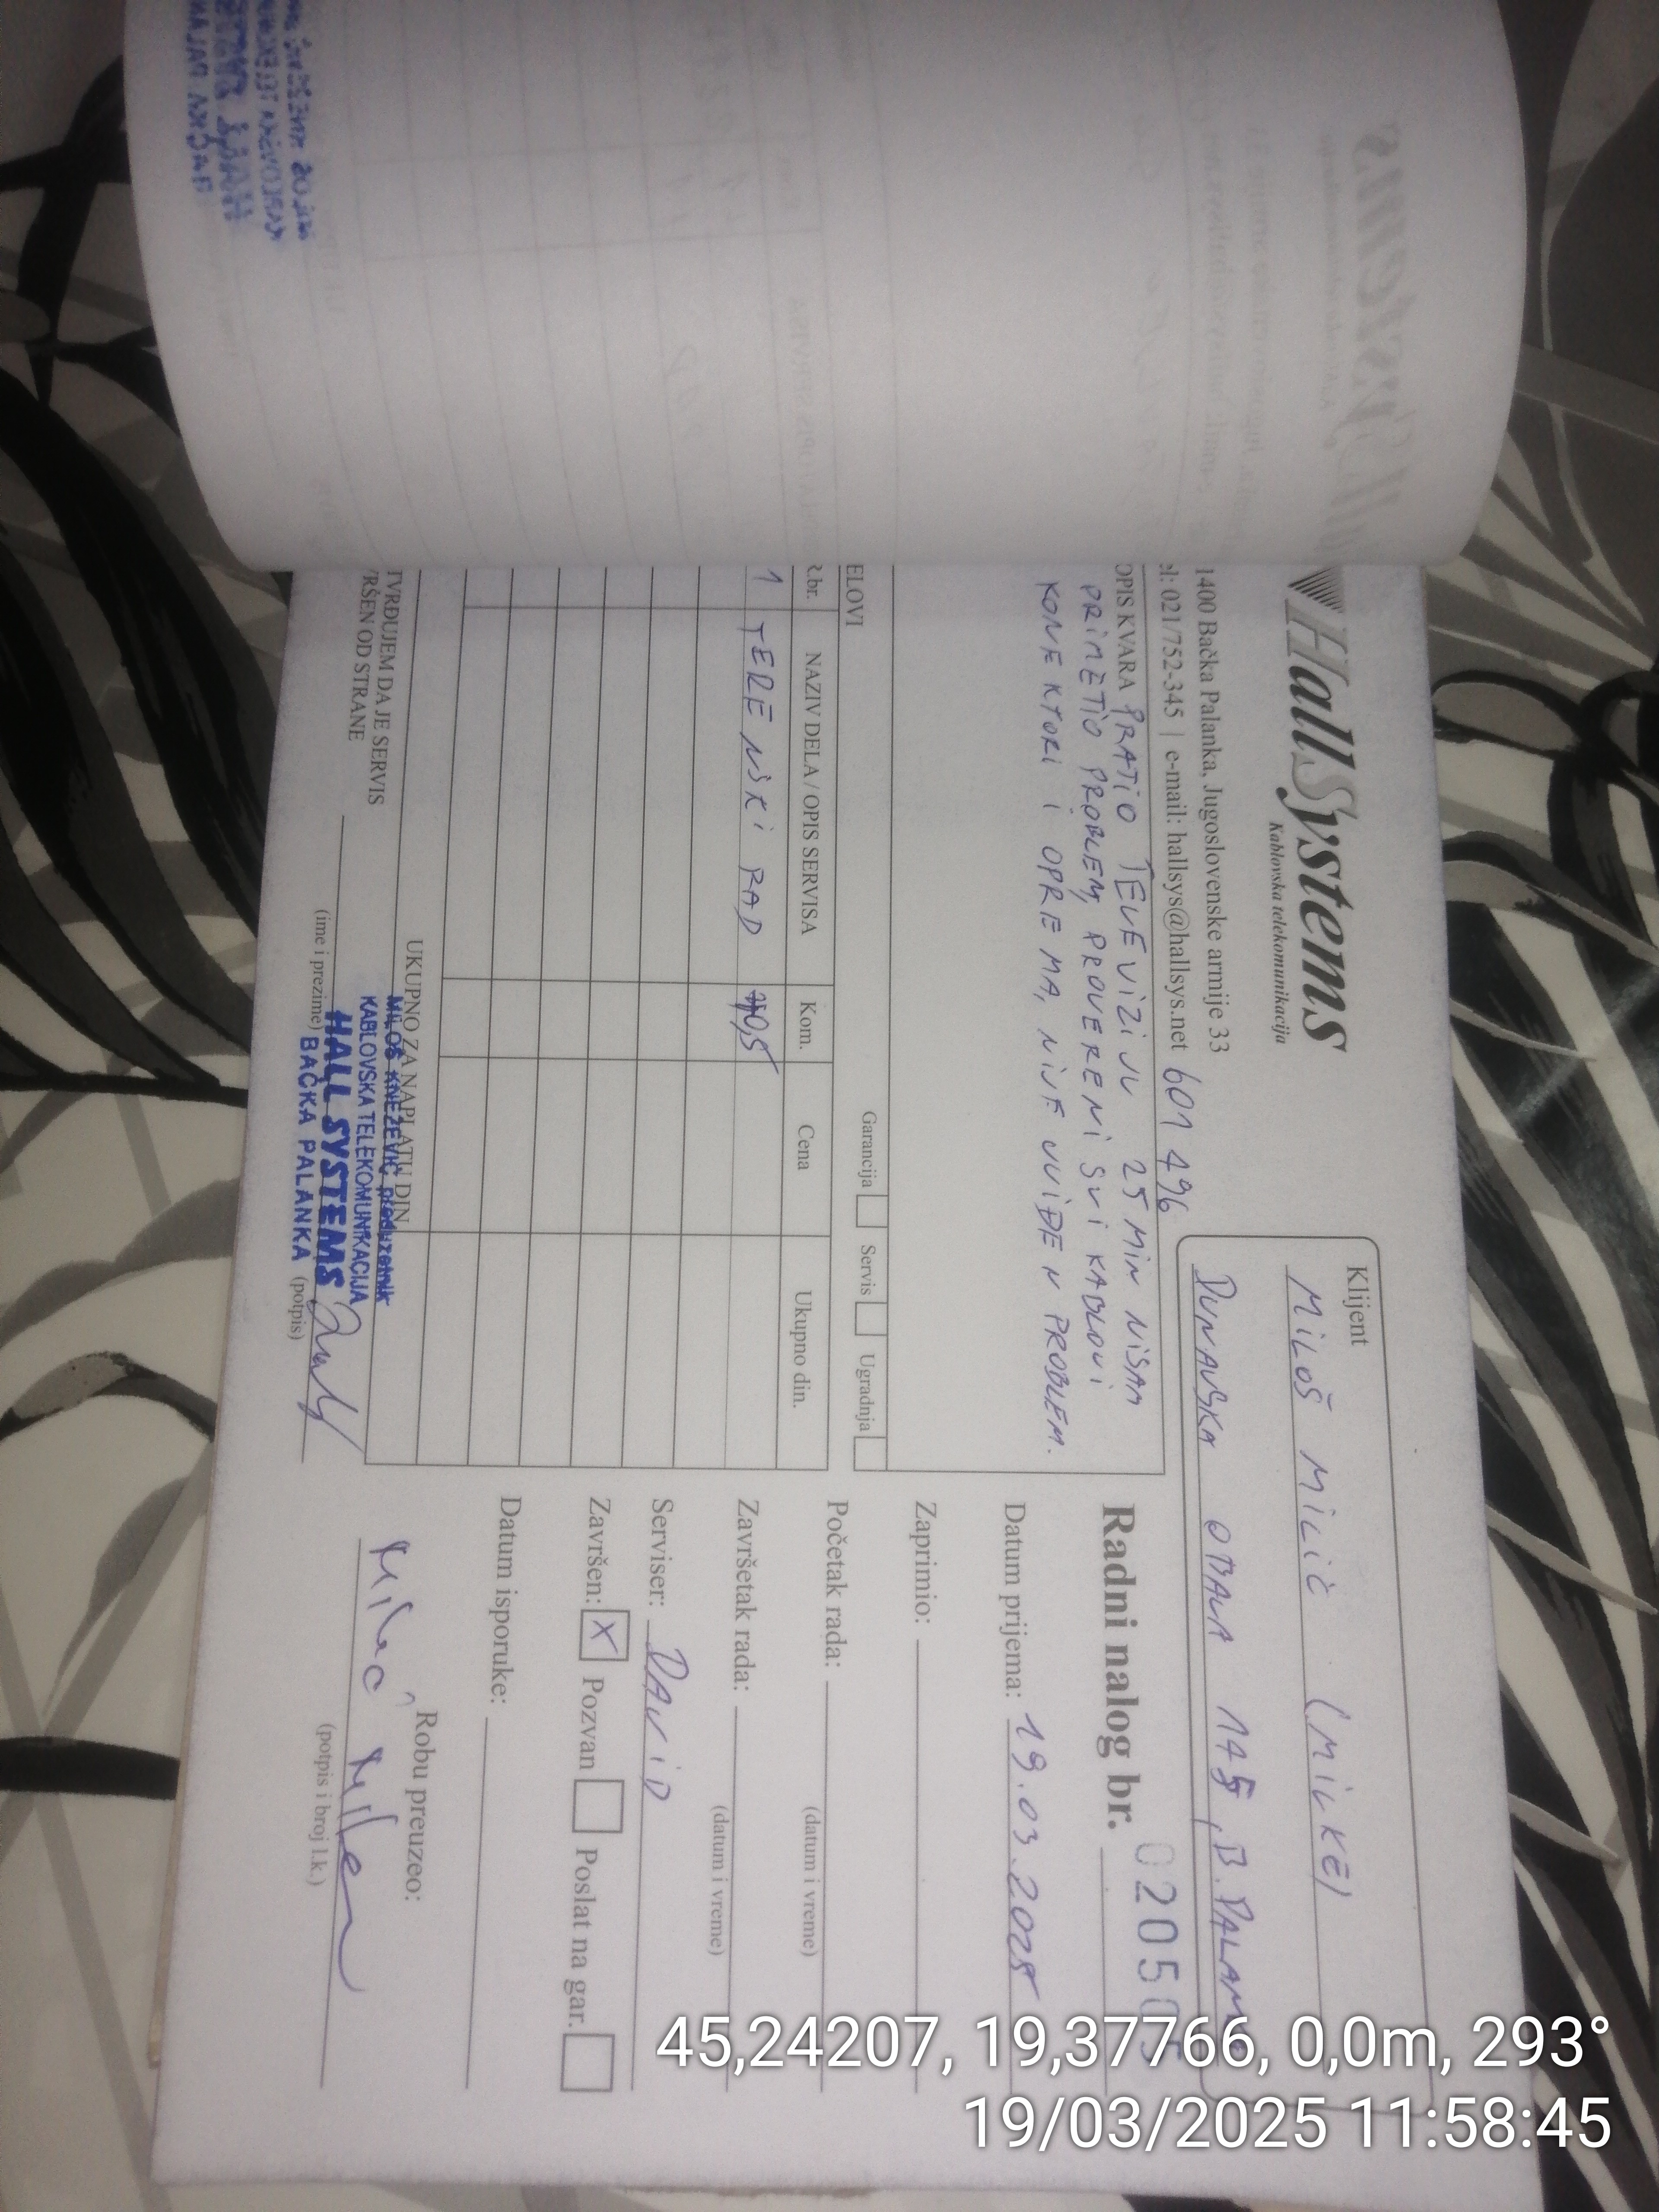 HallSystems
Kablovska telekomunikacija
1400 Bačka Palanka, Jugoslovenske armije 33
el: 021/752-345 | e-mail: hallsys@hallsys.net 601 496
Klijent
MILOŠ MILIĆ (MILKE)
DUNAVSKA OBALA 145, B. PALANKA
OPIS KVARA PRATIO TEVEVIZIJU 25 MIN NISAM
PRIMETIO PROBLEM, PROVERENI SVI KABLOVI
KONEKTORI I OPREMA, NIJE UVIĐEN PROBLEM.
ELOVI
Garancija Servis Ugradnja
R.br. NAZIV DELA / OPIS SERVISA Kom. Cena Ukupno din.
1 TERENSKI RAD 0,5
UKUPNO ZA NAPLATU DIN
TVRĐUJEM DA JE SERVIS
VRŠEN OD STRANE
(ime i prezime)
(potpis)
MILOŠ KNEŽEVIĆ preduzetnik
KABLOVSKA TELEKOMUNIKACIJA
HALL SYSTEMS
BAČKA PALANKA
Radni nalog br. 020505
Datum prijema: 19.03.2025
Zaprimio:
Početak rada:
(datum i vreme)
Završetak rada:
(datum i vreme)
Serviser: DAVID
Završen: X Pozvan Poslat na gar.
Datum isporuke:
Robu preuzeo:
(potpis i broj l.k.)
45,24207, 19,37766, 0,0m, 293°
19/03/2025 11:58:45